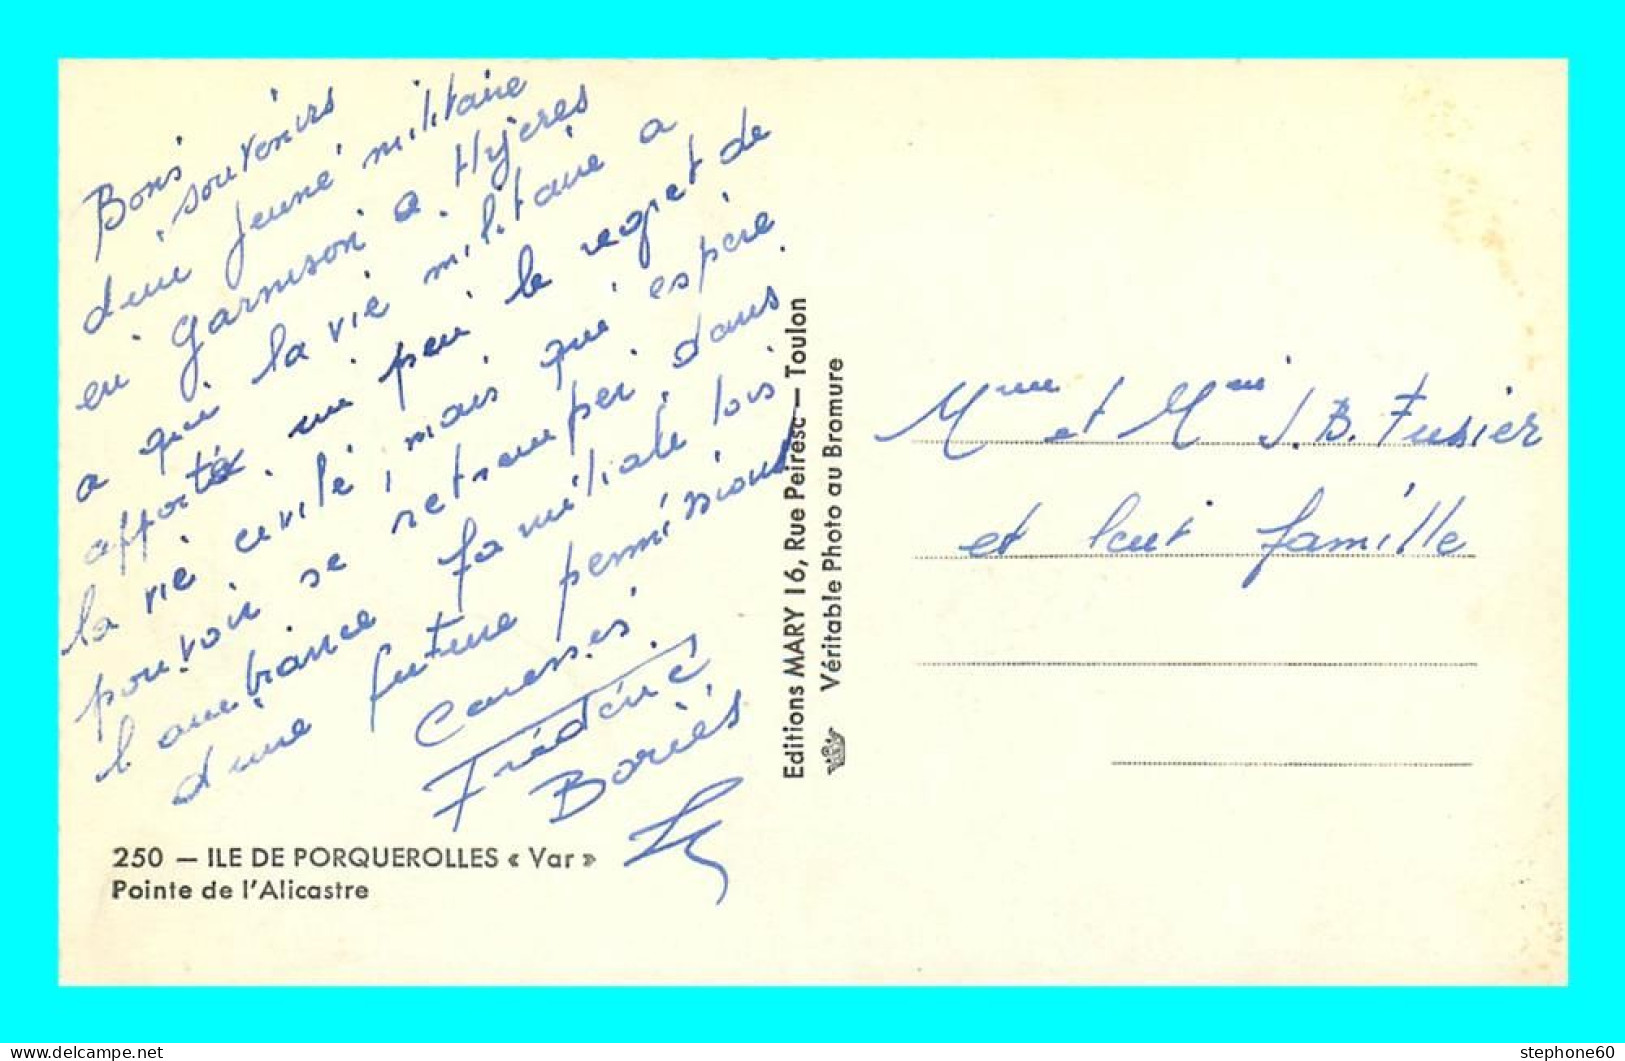 Bons souvenirs
d'un jeune militaire
en garnison a Hyeres
a qui la vie militaire a
apporté un peu le regret de
la vie civile, mais qui espère
pouvoir se retremper dans
l'ambiance familiale lors
d'une future permission
Caresses
Frédéric
Boriès
250 — ILE DE PORQUEROLLES « Var »
Pointe de l'Alicastre
Editions MARY 16, Rue Peiresc — Toulon
Véritable Photo au Bromure
Mme et Mr J.B. Fusier
et leur famille
delcampe.net
stephone60